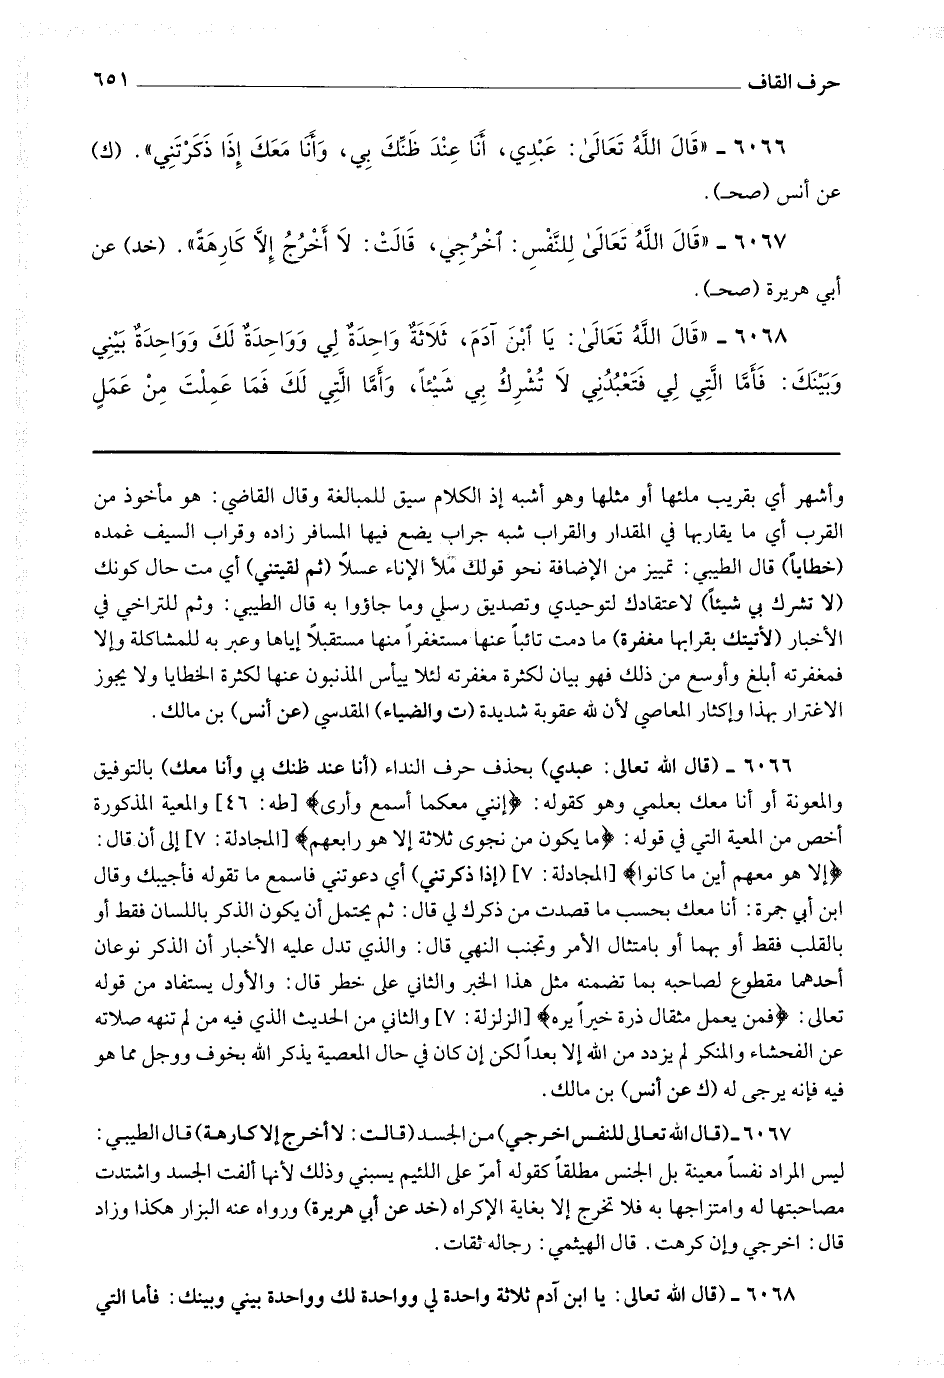 حرف القاف ٦٥١
٦٠٦٦ ـ «قَالَ اللَّهُ تَعَالَىٰ: عَبْدِي، أَنَا عِنْدَ ظَنِّكَ بِي، وَأَنَا مَعَكَ إِذَا ذَكَرْتَنِي». (ك)
عن أنس (صحـ).
٦٠٦٧ ـ «قَالَ اللَّهُ تَعَالَىٰ لِلنَّفْسِ: ٱخْرُجِي، قَالَتْ: لَا أَخْرُجُ إِلَّا كَارِهَةً». (خد) عن
أبي هريرة (صحـ).
٦٠٦٨ ـ «قَالَ اللَّهُ تَعَالَىٰ: يَا ٱبْنَ آدَمَ، ثَلَاثَةٌ وَاحِدَةٌ لِي وَوَاحِدَةٌ لَكَ وَوَاحِدَةٌ بَيْنِي
وَبَيْنَكَ: فَأَمَّا الَّتِي لِي فَتَعْبُدُنِي لَا تُشْرِكُ بِي شَيْئاً، وَأَمَّا الَّتِي لَكَ فَمَا عَمِلْتَ مِنْ عَمَلٍ
وأشهر أي بقريب ملئها أو مثلها وهو أشبه إذ الكلام سيق للمبالغة وقال القاضي: هو مأخوذ من
القرب أي ما يقاربها في المقدار والقراب شبه جراب يضع فيها المسافر زاده وقراب السيف غمده
(خطاياً) قال الطيبي: تمييز من الإضافة نحو قولك مُلأ الإناء عسلاً (ثم لقيتني) أي مت حال كونك
(لا تشرك بي شيئاً) لاعتقادك لتوحيدي وتصديق رسلي وما جاؤوا به قال الطيبي: وثم للتراخي في
الأخبار (لأتيتك بقرابها مغفرة) ما دمت تائباً عنها مستغفراً منها مستقبلاً إياها وعبر به للمشاكلة وإلا
فمغفرته أبلغ وأوسع من ذلك فهو بيان لكثرة مغفرته لئلا ييأس المذنبون عنها لكثرة الخطايا ولا يجوز
الاغترار بهذا وإكثار المعاصي لأن لله عقوبة شديدة (ت والضياء) المقدسي (عن أنس) بن مالك.
٦٠٦٦ ـ (قال الله تعالى: عبدي) بحذف حرف النداء (أنا عند ظنك بي وأنا معك) بالتوفيق
والمعونة أو أنا معك بعلمي وهو كقوله: ﴿إنني معكما أسمع وأرى﴾ [طه: ٤٦] والمعية المذكورة
أخص من المعية التي في قوله: ﴿ما يكون من نجوى ثلاثة إلا هو رابعهم﴾ [المجادلة: ٧] إلى أن قال:
﴿إلا هو معهم أين ما كانوا﴾ [المجادلة: ٧] (إذا ذكرتني) أي دعوتني فاسمع ما تقوله فأجيبك وقال
ابن أبي جمرة: أنا معك بحسب ما قصدت من ذكرك لي قال: ثم يحتمل أن يكون الذكر باللسان فقط أو
بالقلب فقط أو بهما أو بامتثال الأمر وتجنب النهي قال: والذي تدل عليه الأخبار أن الذكر نوعان
أحدهما مقطوع لصاحبه بما تضمنه مثل هذا الخبر والثاني على خطر قال: والأول يستفاد من قوله
تعالى: ﴿فمن يعمل مثقال ذرة خيراً يره﴾ [الزلزلة: ٧] والثاني من الحديث الذي فيه من لم تنهه صلاته
عن الفحشاء والمنكر لم يزدد من الله إلا بعداً لكن إن كان في حال المعصية يذكر الله بخوف ووجل مما هو
فيه فإنه يرجى له (ك عن أنس) بن مالك.
٦٠٦٧ ـ (قال الله تعالى للنفس اخرجي) من الجسد (قالت: لا أخرج إلا كارهة) قال الطيبي:
ليس المراد نفساً معينة بل الجنس مطلقاً كقوله أمرّ على اللئيم يسبني وذلك لأنها ألفت الجسد واشتدت
مصاحبتها له وامتزاجها به فلا تخرج إلا بغاية الإكراه (خد عن أبي هريرة) ورواه عنه البزار هكذا وزاد
قال: اخرجي وإن كرهت. قال الهيثمي: رجاله ثقات.
٦٠٦٨ ـ (قال الله تعالى: يا ابن آدم ثلاثة واحدة لي وواحدة لك وواحدة بيني وبينك: فأما التي